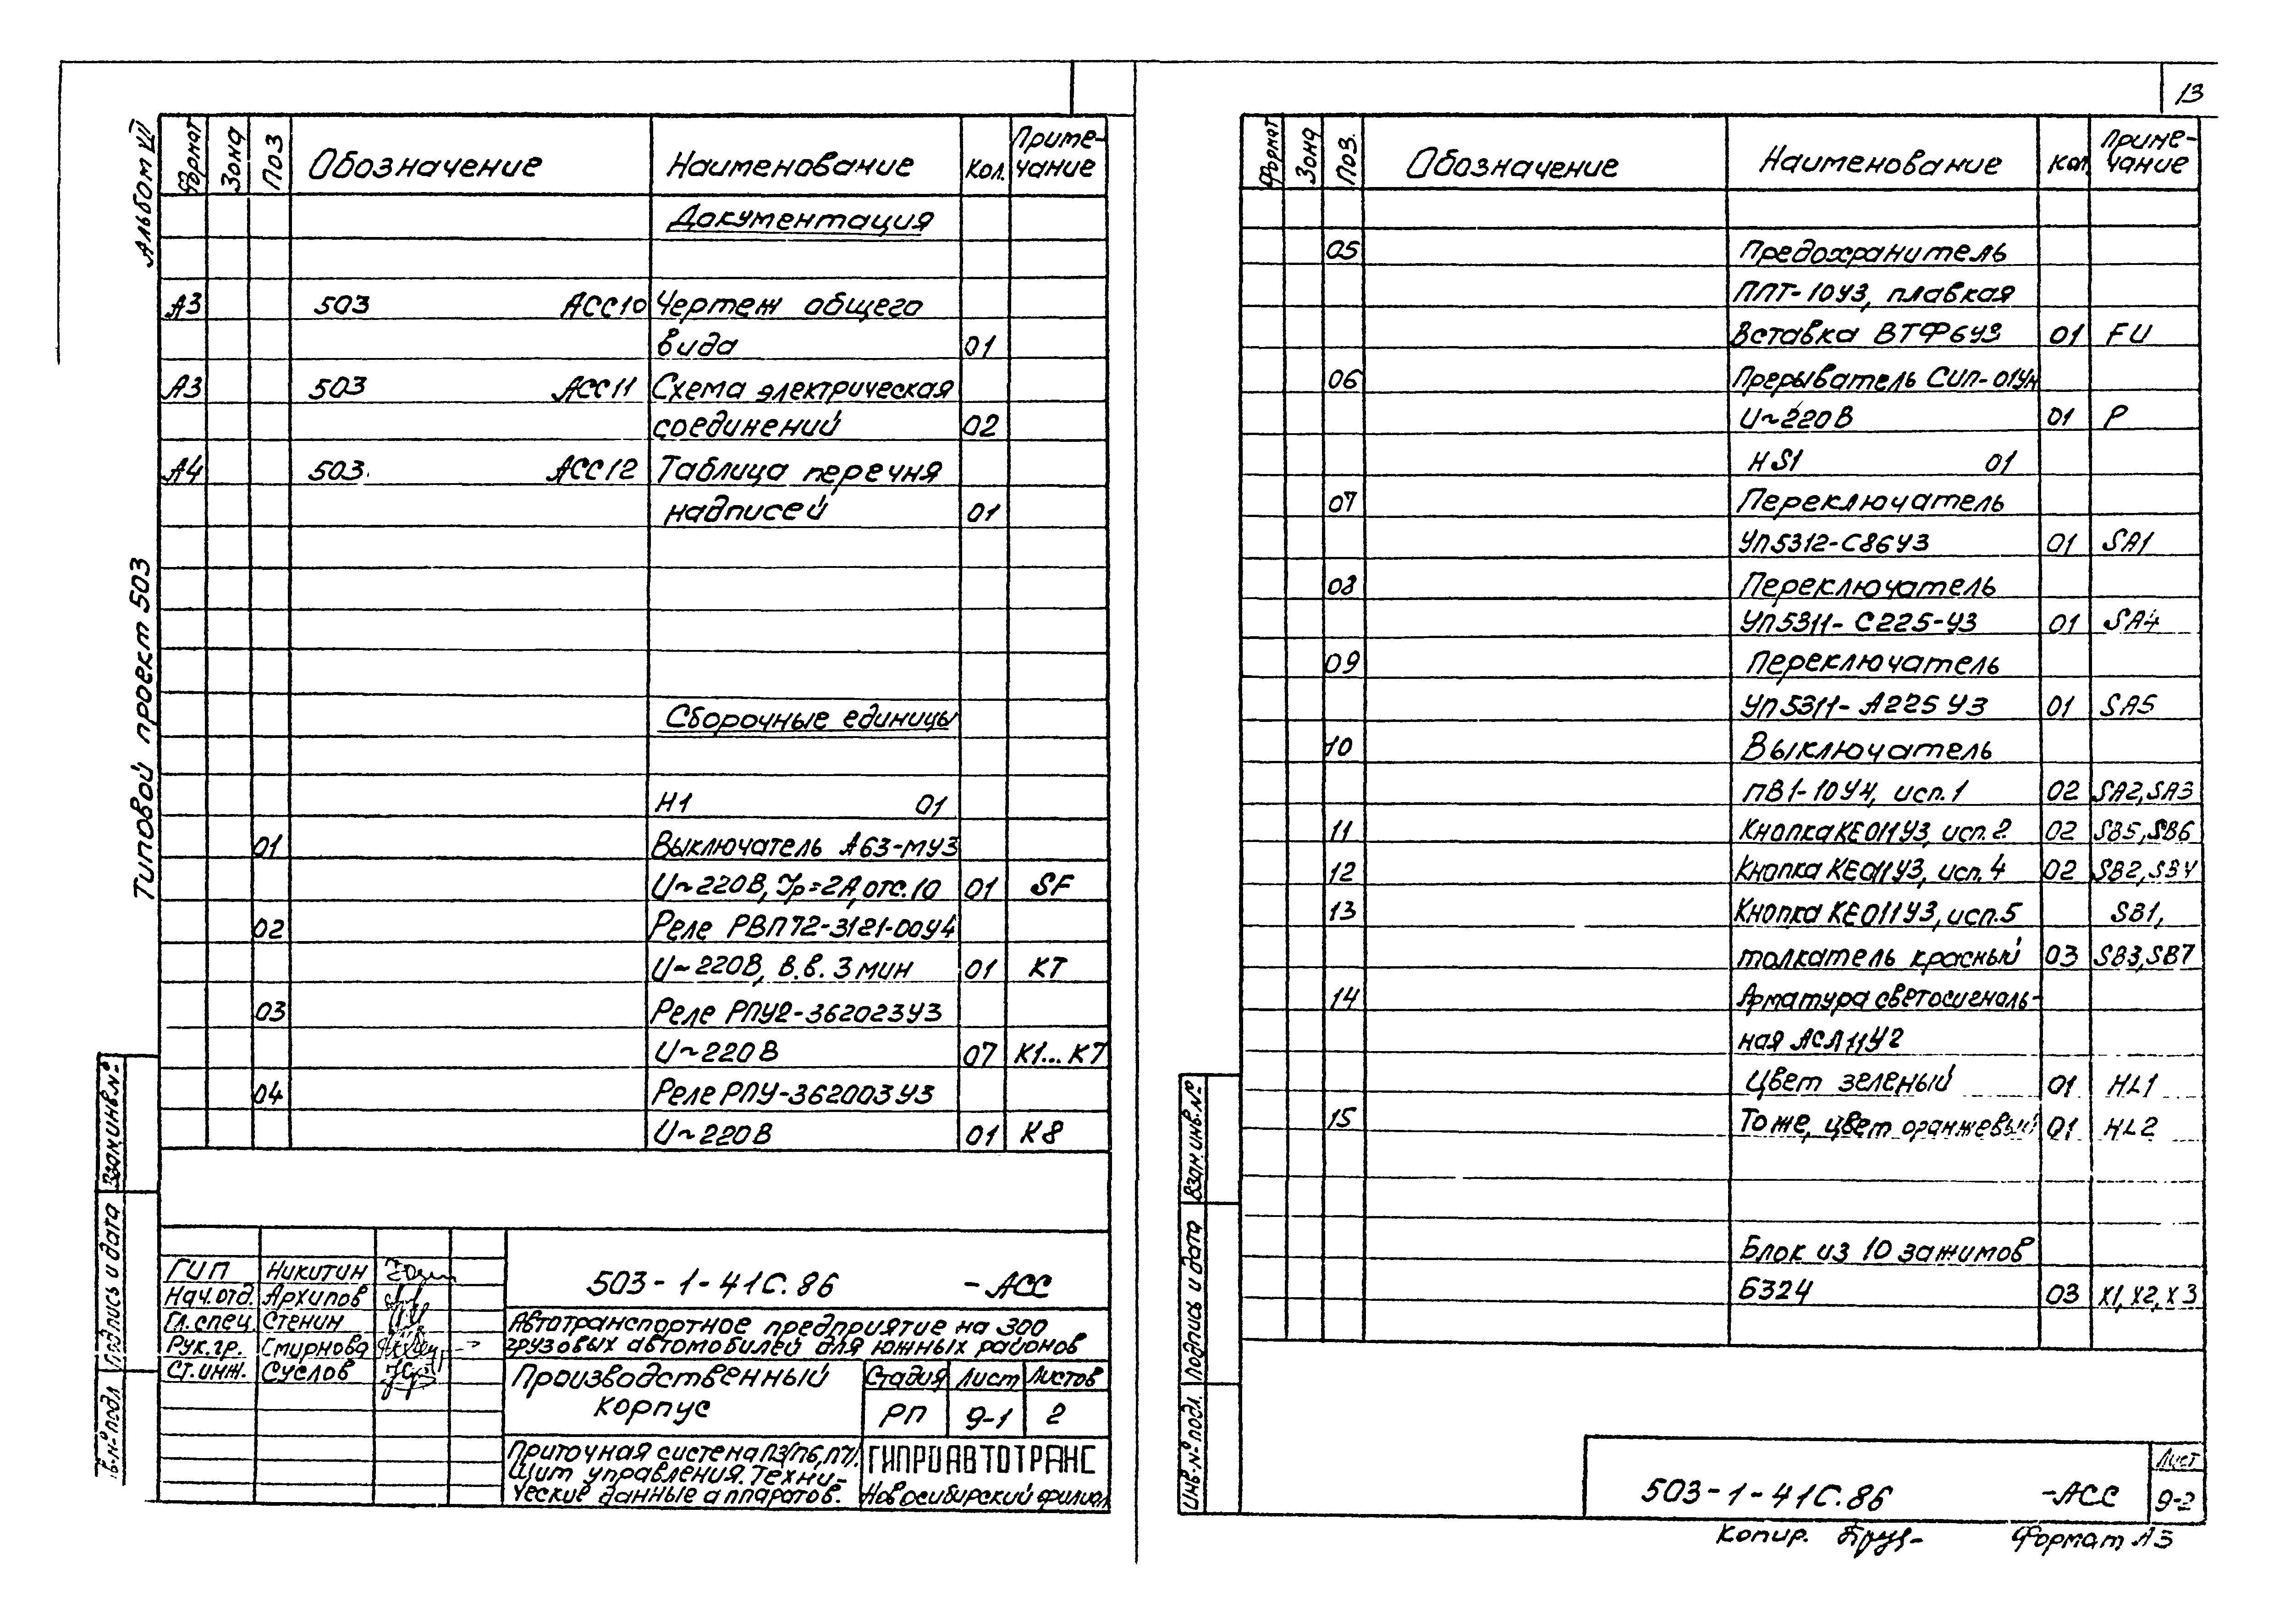 Альбом VII
Типовой проект 503
Формат Зона Поз Обозначение Наименование Кол. Приме-
чание
Документация
А3 503 АСС10 Чертеж общего
вида 01
А3 503 АСС11 Схема электрическая
соединений 02
А4 503. АСС12 Таблица перечня
надписей 01
Сборочные единицы
Н1 01
01 Выключатель А63-МУ3
U~220В, Iр=2А, отс. 10 01 SF
02 Реле РВП72-3121-00У4
U~220В, в.в. 3 мин 01 КТ
03 Реле РПУ2-362023У3
U~220В 07 К1...К7
04 Реле РПУ-362003У3
U~220В 01 К8
Взам.инв.№
Подпись и дата
Инв.№ подл
ГИП Никитин
Нач.отд. Архипов
Гл.спец. Стенин
Рук.гр. Смирнова
Ст.инж. Суслов
503-1-41С.86 -АСС
Автотранспортное предприятие на 300
грузовых автомобилей для южных районов
Производственный
корпус
Стадия Лист Листов
РП 9-1 2
Приточная система П3(П6,П7).
Щит управления. Техни-
ческие данные аппаратов.
ГИПРОАВТОТРАНС
Новосибирский филиал
13
Формат Зона Поз. Обозначение Наименование Кол. Приме-
чание
05 Предохранитель
ППТ-10У3, плавкая
вставка ВТФ6У3 01 FU
06 Прерыватель СИП-01Ун
U~220В 01 Р
НS1 01
07 Переключатель
УП5312-С86У3 01 SA1
08 Переключатель
УП5311-С225-У3 01 SA4
09 Переключатель
УП5311-А225У3 01 SA5
10 Выключатель
ПВ1-10У4, исп.1 02 SA2,SA3
11 Кнопка КЕ011У3, исп.2 02 SB5,SB6
12 Кнопка КЕ011У3, исп.4 02 SB2,SB4
13 Кнопка КЕ011У3, исп.5 SB1,
толкатель красный 03 SB3,SB7
14 Арматура светосигналь-
ная АСЛ11У2
Цвет зеленый 01 HL1
15 То же, цвет оранжевый 01 HL2
Блок из 10 зажимов
Б324 03 X1, X2, X3
Взам.инв.№
Подпись и дата
Инв.№ подл.
503-1-41С.86 -АСС
Лист
9-2
Копир. Формат А3